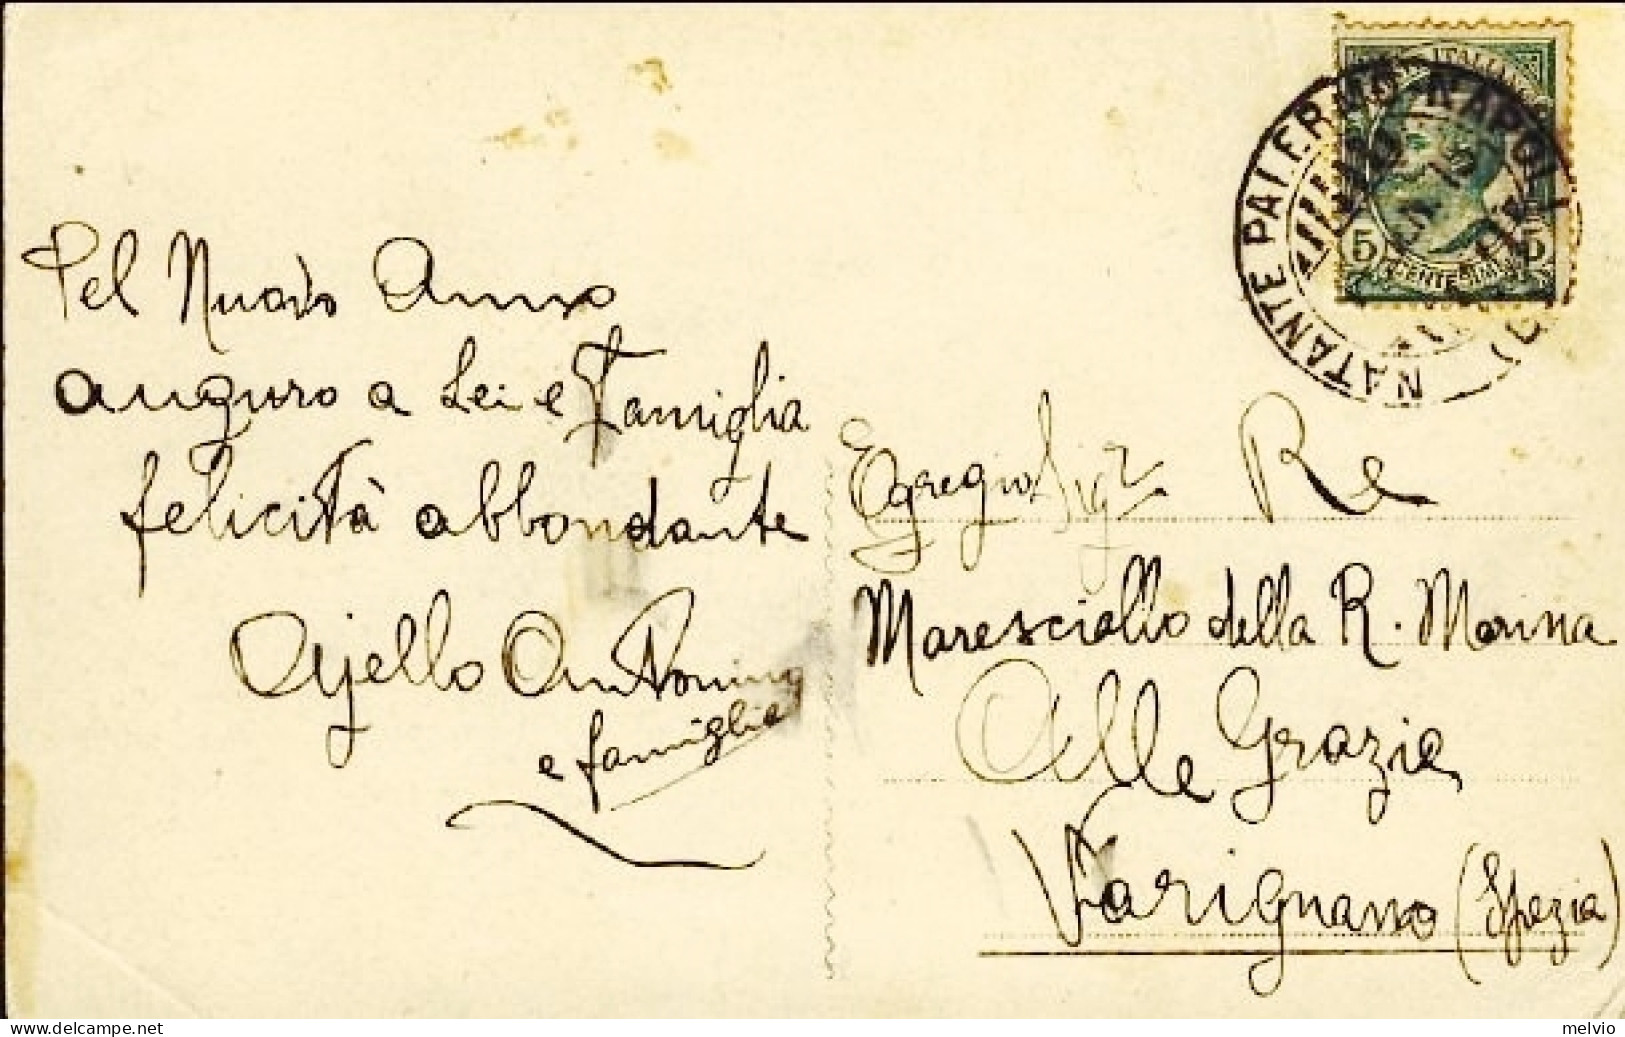 Pel Nuovo Anno
auguro a Lei e famiglia
felicità abbondante
Ajello Antonino
e famiglia
NATANTE PALERMO-NAPOLI
5 CENTESIMI 5
Egregio Sigr Re
Maresciallo della R. Marina
Alle Grazie
Varignano (Spezia)
delcampe.net
melvio